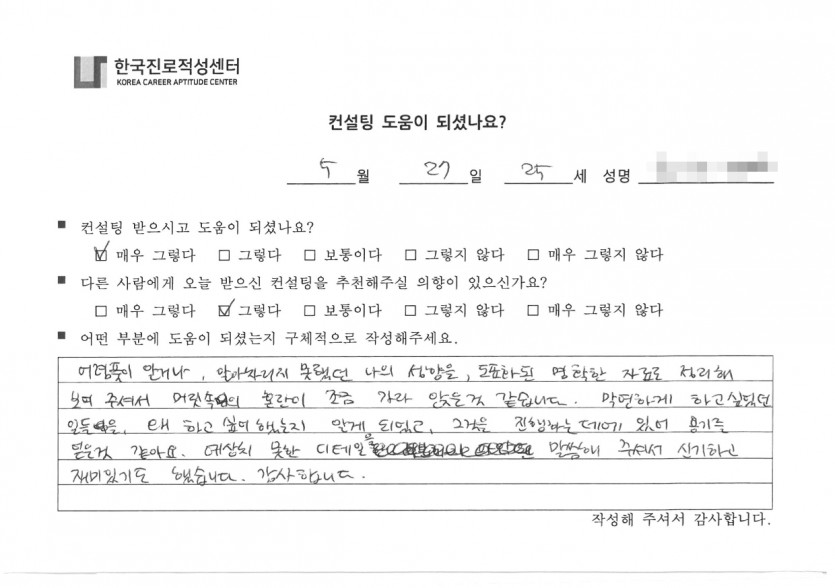 한국진로적성센터
KOREA CAREER APTITUDE CENTER
컨설팅 도움이 되셨나요?
5 월 27 일 25 세 성명
■ 컨설팅 받으시고 도움이 되셨나요?
☑ 매우 그렇다 □ 그렇다 □ 보통이다 □ 그렇지 않다 □ 매우 그렇지 않다
■ 다른 사람에게 오늘 받으신 컨설팅을 추천해주실 의향이 있으신가요?
□ 매우 그렇다 ☑ 그렇다 □ 보통이다 □ 그렇지 않다 □ 매우 그렇지 않다
■ 어떤 부분에 도움이 되셨는지 구체적으로 작성해주세요.
어렴풋이 알거나, 알아차리지 못했던 나의 성향을, 도표화된 명확한 자료로 정리해
보여 주셔서 머릿속의 혼란이 조금 가라 앉은것 같습니다. 막연하게 하고싶었던
일들을, 왜 하고 싶어 했는지 알게 되었고, 그것을 진행하는데에 있어 용기를
얻은것 같아요. 예상치 못한 디테일을 말씀해 주셔서 신기하고
재미있기도 했습니다. 감사합니다.
작성해 주셔서 감사합니다.